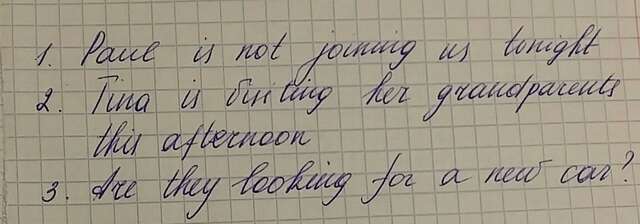 1. Paul is not joining us tonight
2. Tina is visiting her grandparents
this afternoon
3. Are they looking for a new car?